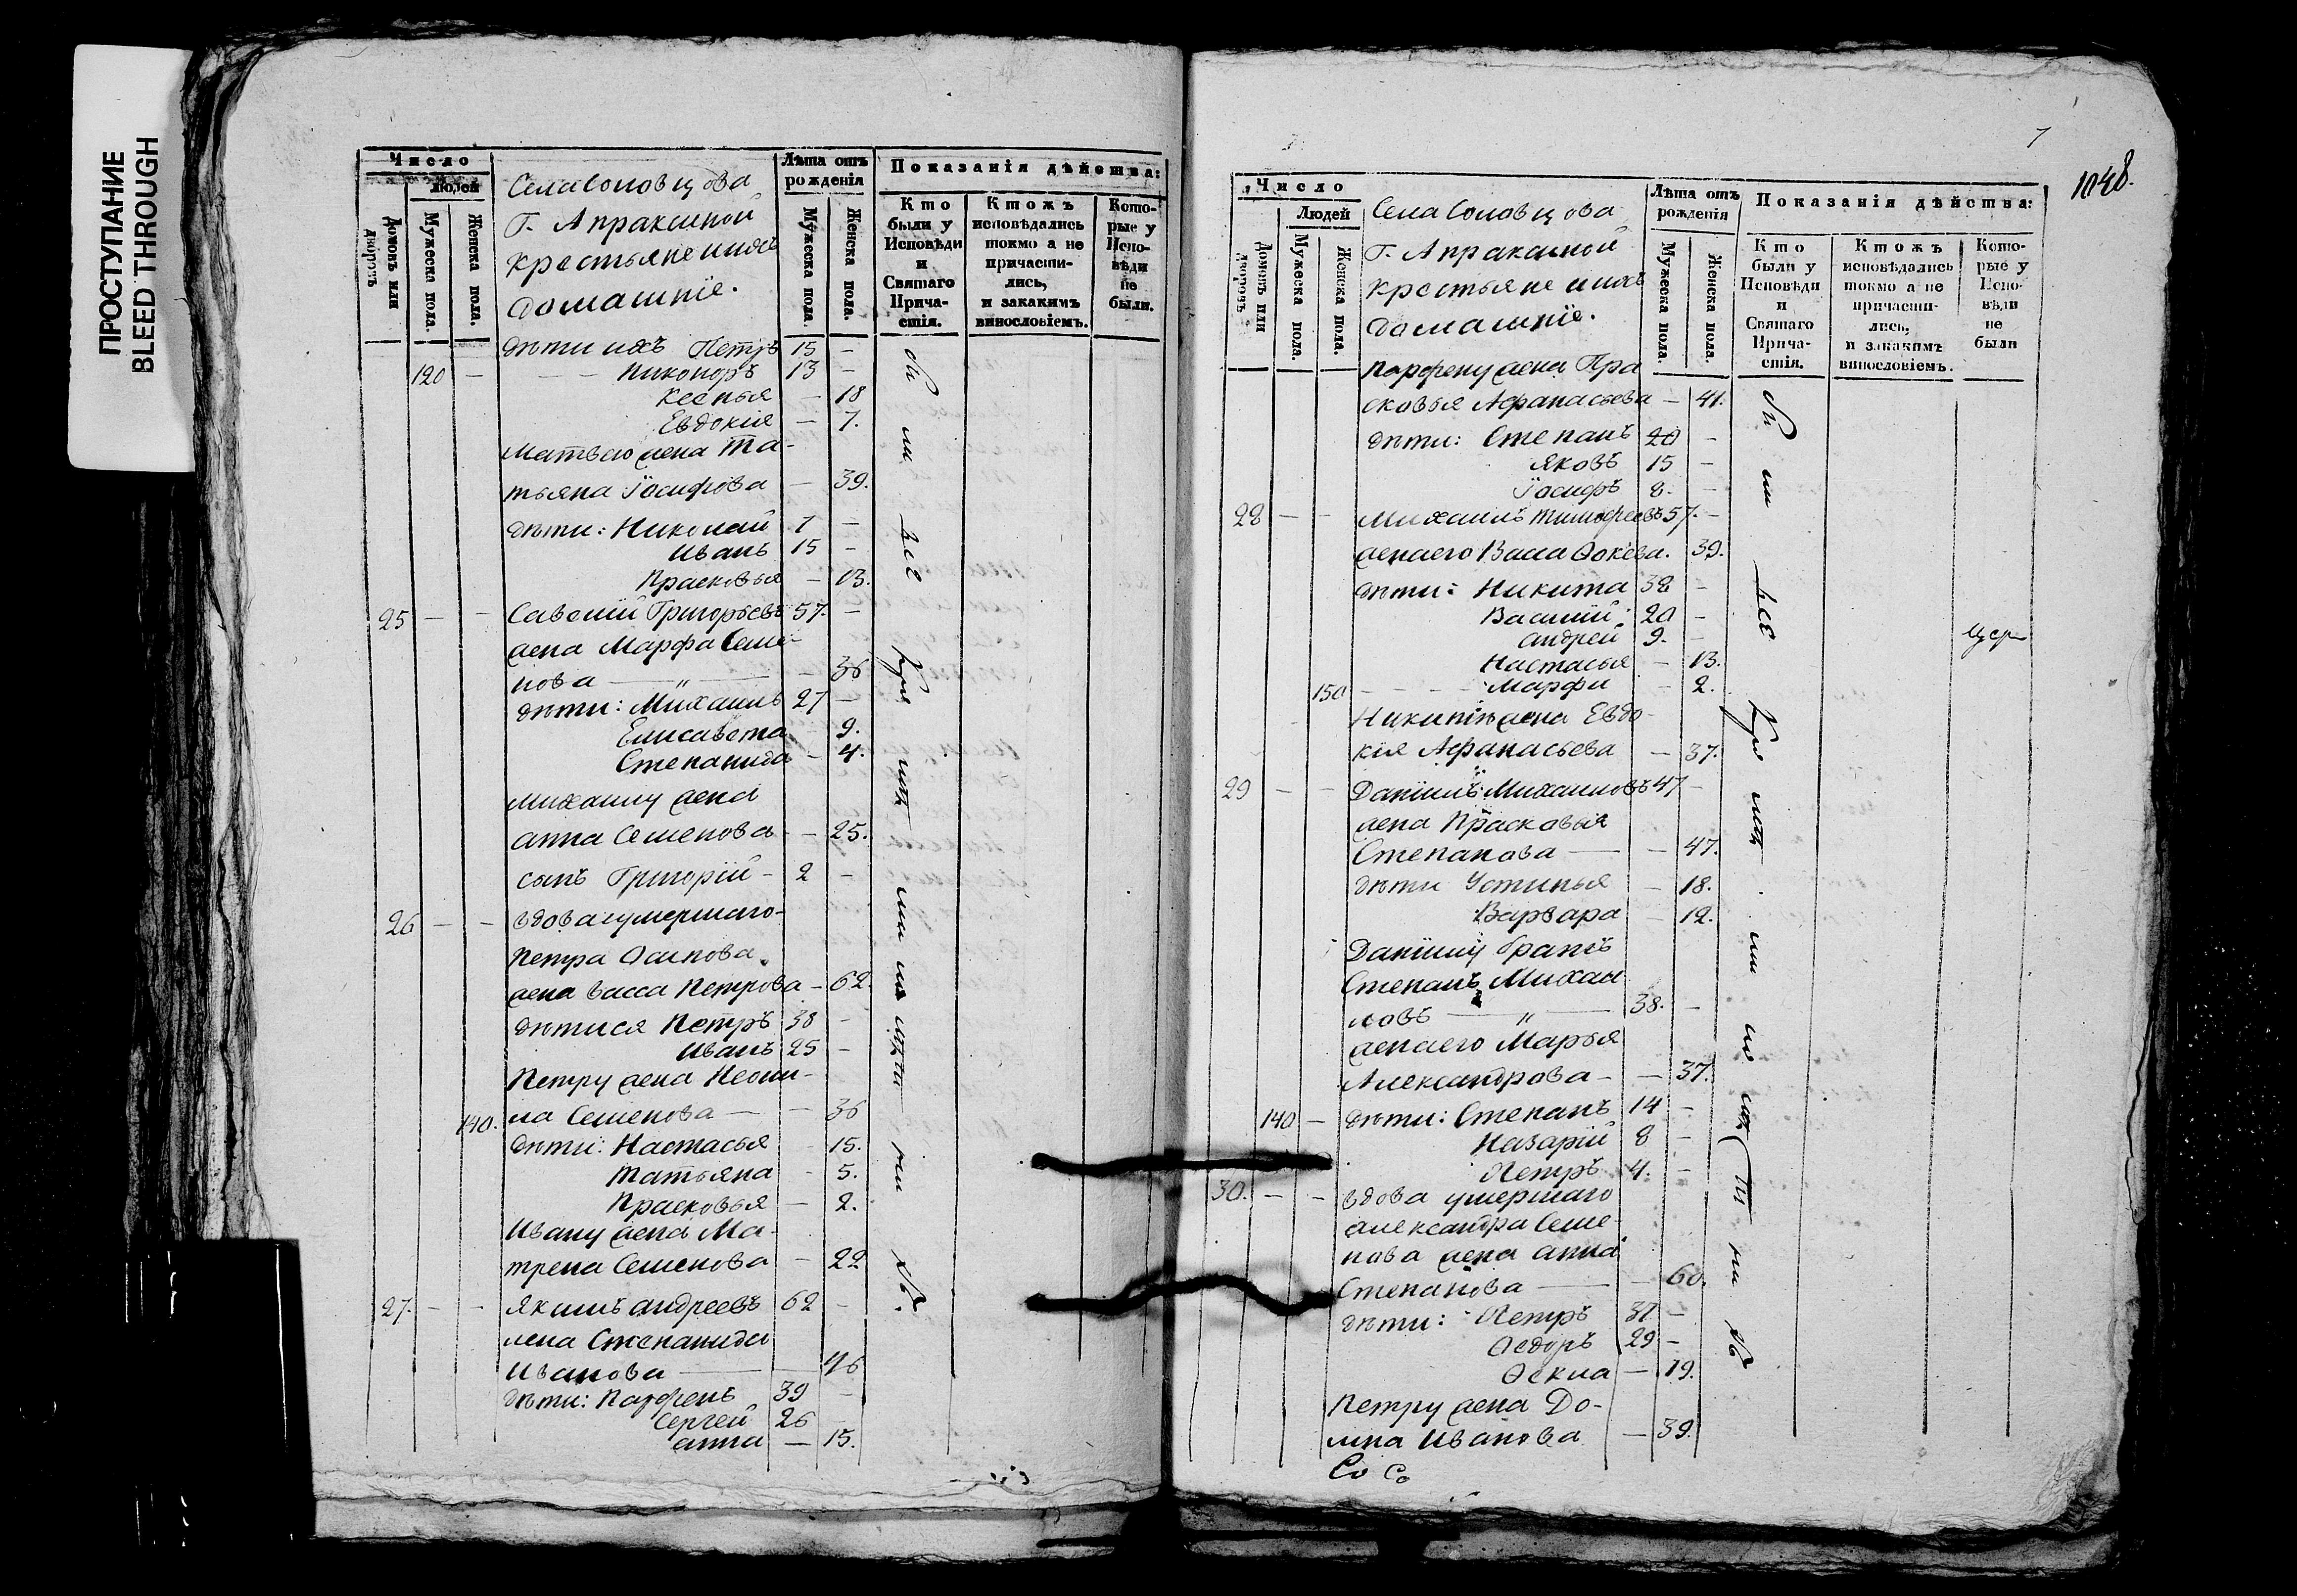 ПРОСТУПАНИЕ
BLEED THROUGH
Число
Людей
Домовъ или дворовъ
Мужеска пола.
Женска пола.
Села Соловцова
Г. Апраксиной
крестьяне и ихъ
домашніе.
Лѣта отъ рожденія
Мужеска пола.
Женска пола.
Показанія дѣйства:
Кто были у Исповѣди и Святаго Причастія.
Ктожъ исповѣдались токмо а не причастились, и закакимъ винословіемъ.
Которые у Исповѣди не были.
дѣти ихъ Петръ 15 —
120 — Никоноръ 13 —
Ксенья — 18
Евдокія — 7.
Матвѣю жена Та-
тьяна Іосифова — 39.
дѣти: Николай 7 —
Иванъ 15 —
Прасковья — 13.
25 — — Савелій Григорьевъ 57. —
жена Марфа Семе-
нова — „ — 36
дѣти: Михаилъ 27 —
Елисавета 9.
Степанида — 4.
Михаилу жена
Анна Семенова — 25.
сынъ Григорій — 2 —
26 — — вдова умершаго
Петра Осипова
жена Васса Петрова — 62.
дѣти ся Петръ 38 —
Иванъ 25 —
Петру жена Неони-
140. ла Семенова — — 36
дѣти: Настасья 15.
Татьяна — 5.
Прасковья — 2.
Ивану жена Ма-
трена Семенова — 22
27. — — Якимъ Андреевъ 62 —
жена Степанида
Иванова — 46
дѣти: Парфенъ 39 —
Сергей 26
Анна — 15.
7
1048.
Число
Людей
Домовъ или дворовъ
Мужеска пола.
Женска пола.
Села Соловцова
Г. Апраксиной
крестьяне и ихъ
домашніе.
Лѣта отъ рожденія
Мужеска пола.
Женска пола.
Показанія дѣйства:
Кто были у Исповѣди и Святаго Причастія.
Ктожъ исповѣдались токмо а не причастились, и закакимъ винословіемъ.
Которые у Исповѣди не были
Парфену жена Пра
сковья Афанасьева — 41.
дѣти: Степанъ 20 —
Яковъ 15 —
Іосифъ 8. —
28 — — Михаилъ Тимофеевъ 57. —
жена его Васса Фокева. 39.
дѣти: Никита 38 —
Василій 20 —
Андрей 9. —
Настасья — 13.
150 — Марфа — 2.
Никитѣ жена Евдо-
кія Афанасьева — 37.
29 — — Даніилъ Михаиловъ 47 —
жена Прасковья
Степанова — — 47.
дѣти Устинья — 18.
Варвара — 12.
Даніилу братъ
Степанъ Михаи
ловъ — „ — 38. —
жена его Марья
Александрова — — 37.
140 — дѣти: Степанъ 14 —
Назарій 8 —
Петръ 4. —
30. — — вдова умершаго
Александра Семе-
нова жена Анна
Степанова — — 60.
дѣти: Петръ 37. —
Ѳедоръ 29 —
Ѳекла — 19.
Петру жена До-
мна Иванова — 39.